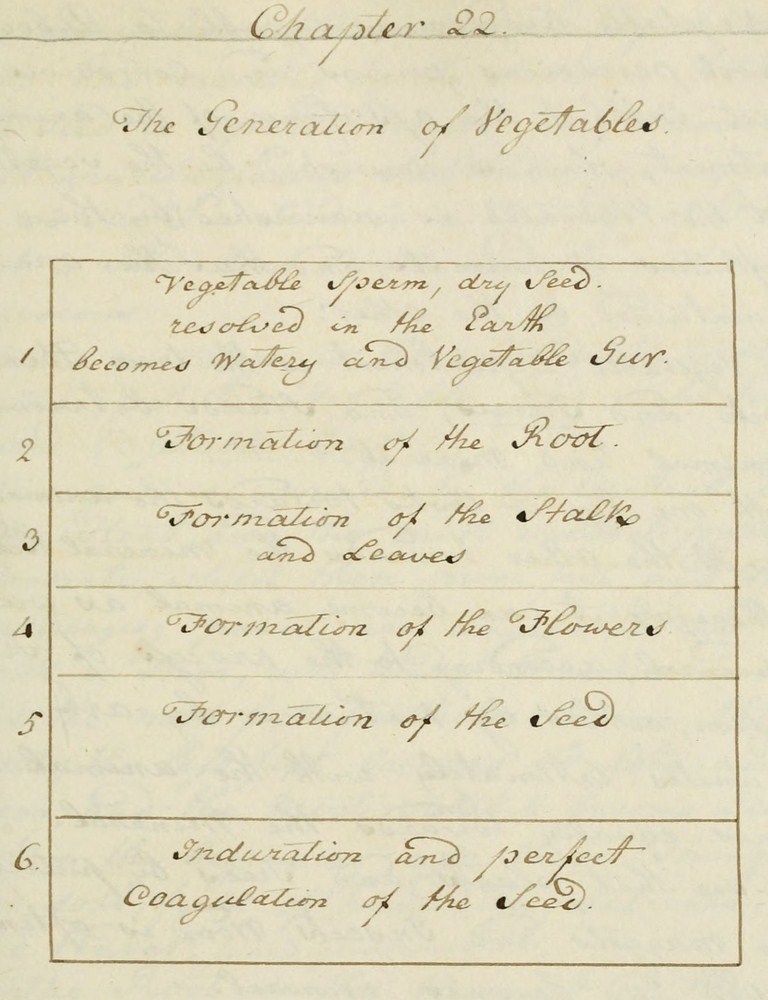 Chapter 22.
The Generation of Vegetables.
Vegetable Sperm, dry Seed.
resolved in the Earth
1 becomes Watery and Vegetable Gur.
2 Formation of the Root.
Formation of the Stalk
3
and Leaves
4 Formation of the Flowers
5 Formation of the Seed
6. Induration and perfect
Coagulation of the Seed.